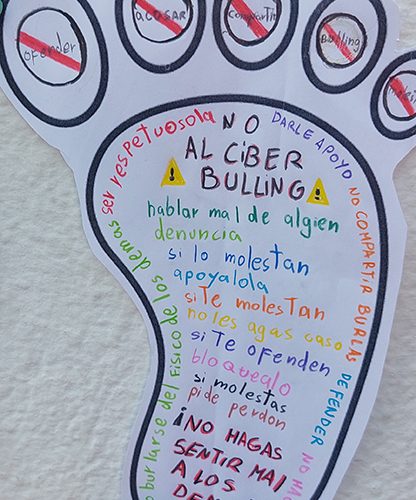 ofender
acosar
compartir
Bulling
NO
AL CiBER
BULLING
hablar mal de algien
denuncia
si lo molestan
apoyalola
si Te molesTan
no les agas caso
si Te oFenden
bloquealo
si molestas
pide perdon
¡NO HAGAS
SENTIR MAl
A LOS
ser respetuosola
DARLE APOYO
NO COMPARTIR BURLAS
DEFENDER
NO
burlarse del Fisico de los demas